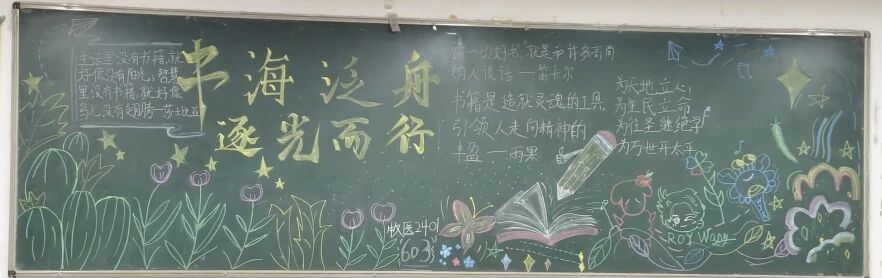 生活里没有书籍,就
好像没有阳光;智慧
里没有书籍,就好像
鸟儿没有翅膀—莎士比亚
书海泛舟
逐光而行
读一切好书,就是和许多高尚
的人谈话—笛卡尔
书籍是造就灵魂的工具,
引领人走向精神的
丰盈—雨果
为天地立心
为生民立命
为往圣继绝学
为万世开太平
牧医2401
603
ROY Wang